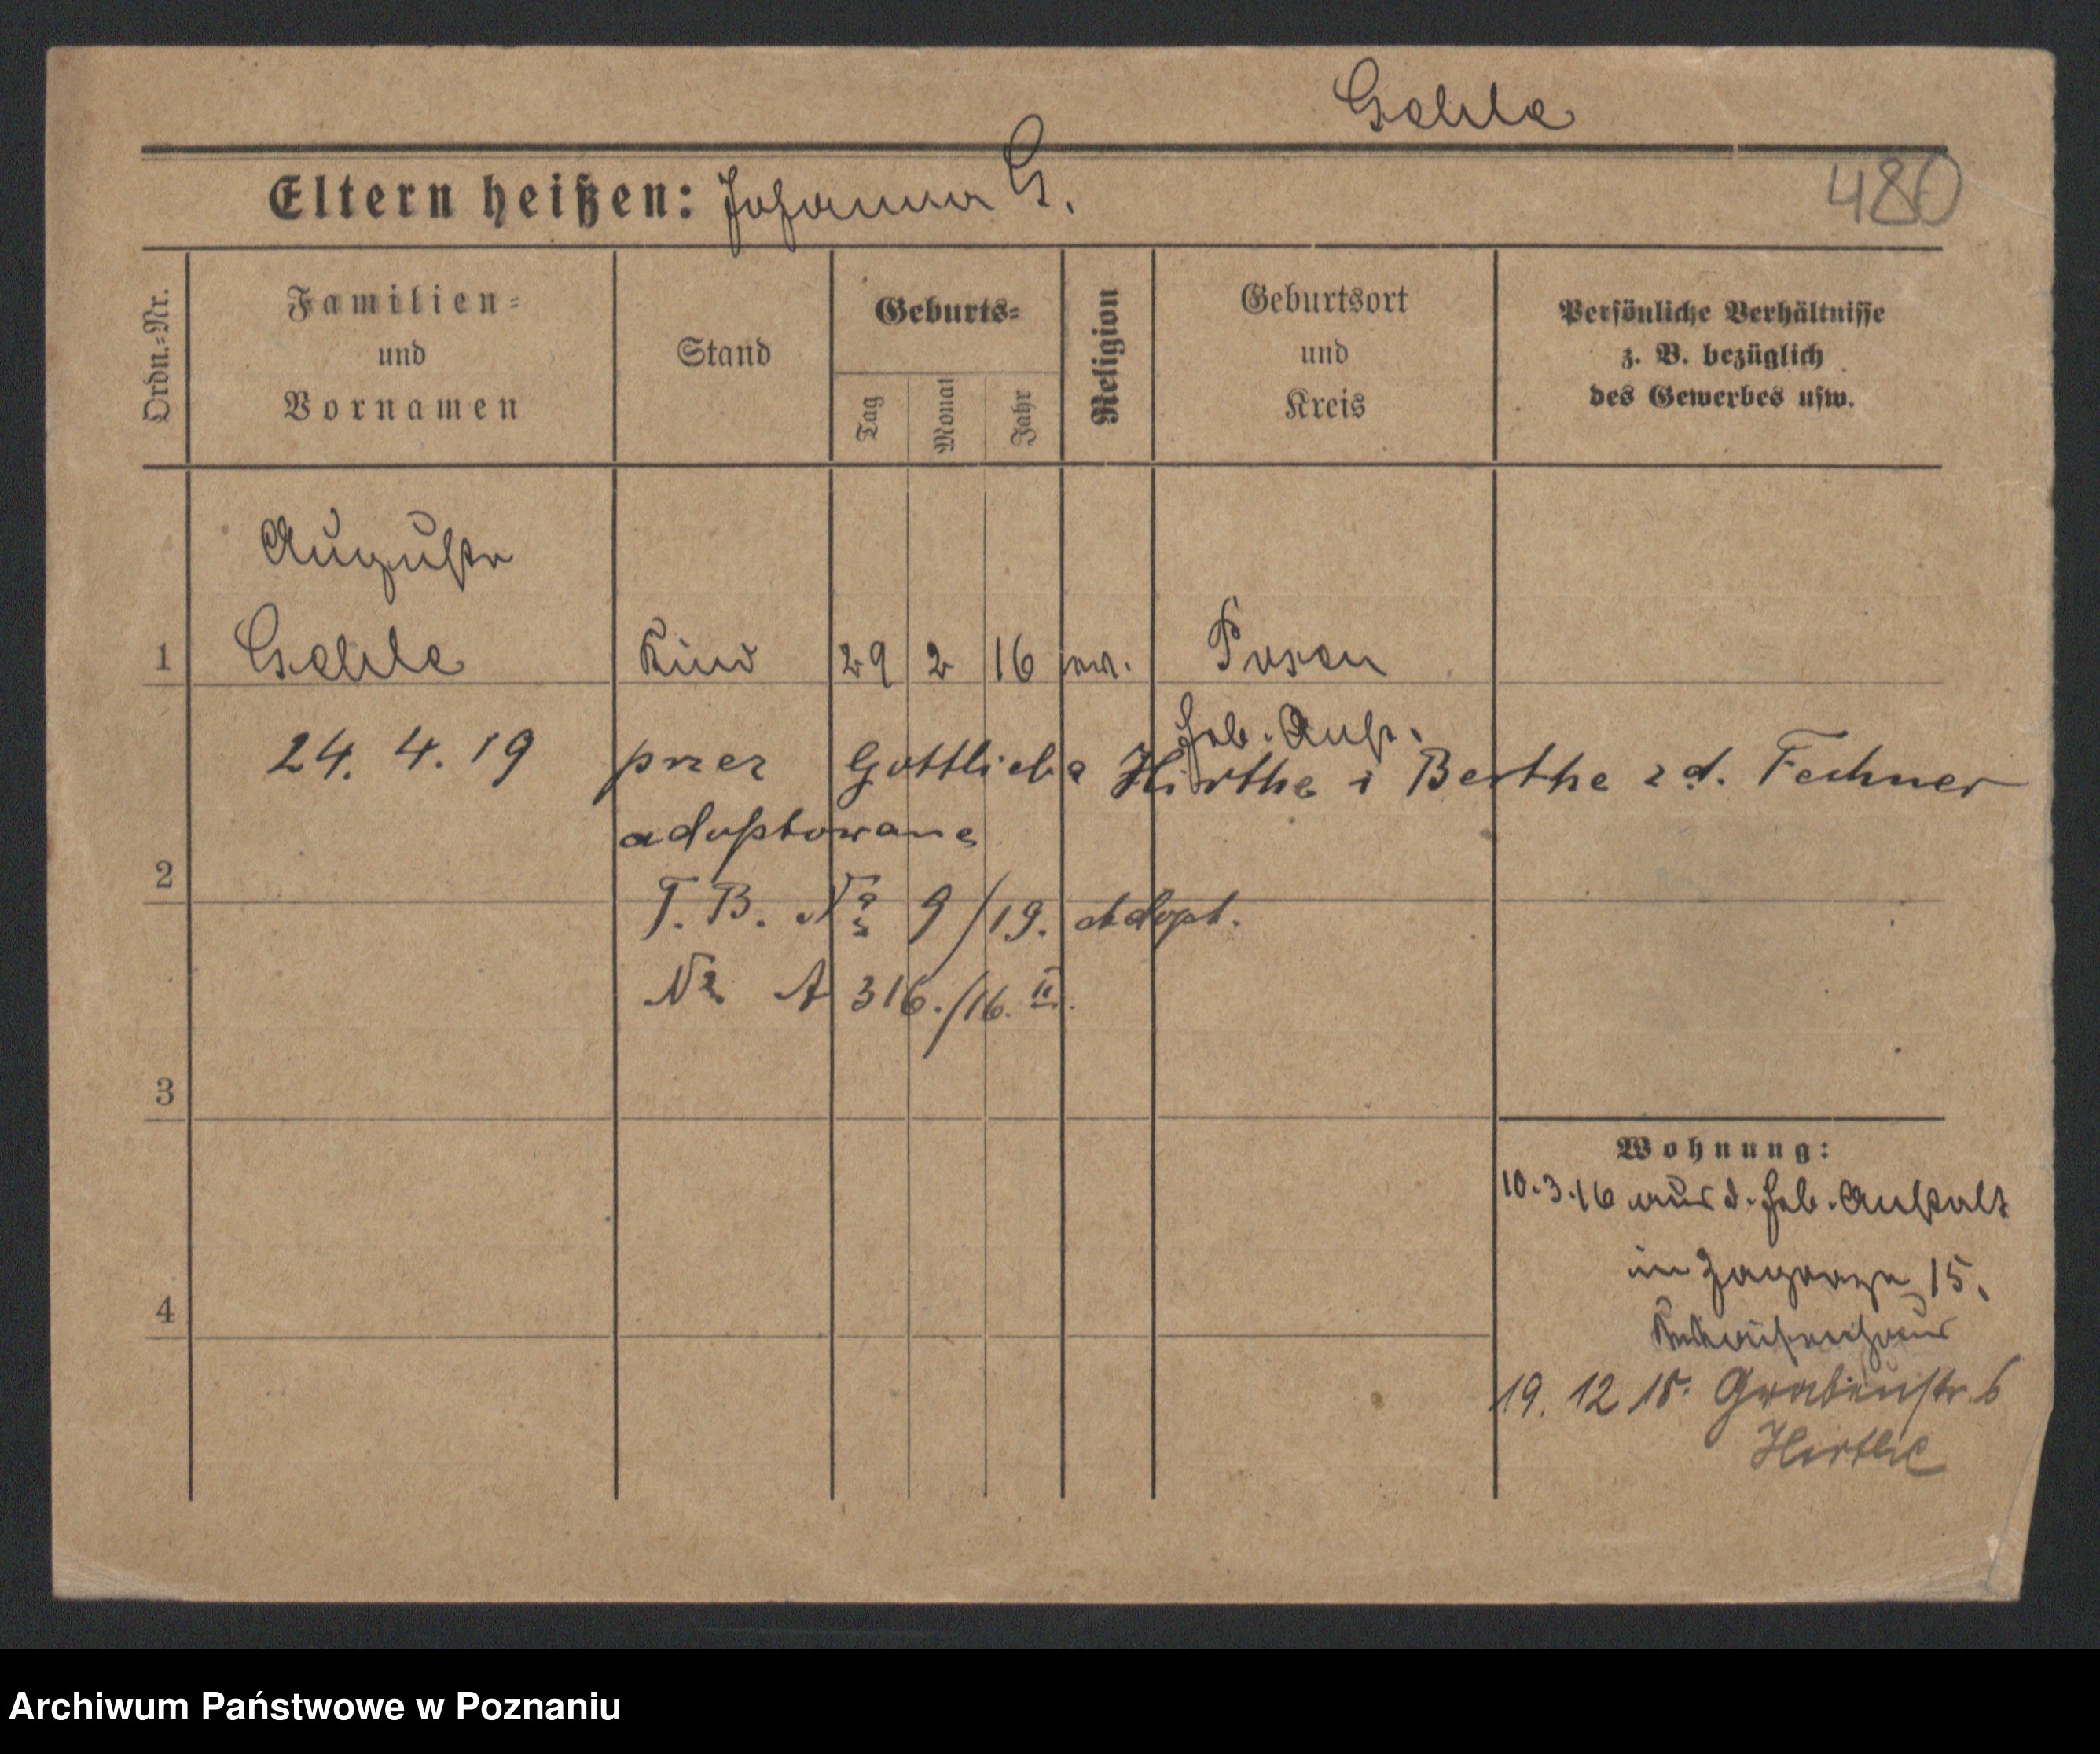 Gehle
Eltern heißen: Johanna G.
480
Ordn.-Nr.
Familien-
und
Vornamen
Stand
Geburts-
Tag
Monat
Jahr
Religion
Geburtsort
und
Kreis
Persönliche Verhältnisse
z. B. bezüglich
des Gewerbes usw.
Auguste
1 Gehle Kind 29 2 16 ev. Posen
Geb. Anst.
24. 4. 19 przez Gottlieba Hirthe i Berthe z d. Fechner
adoptowane
2
T. B. No 9/19. adopt.
No A 316./16. II.
3
Wohnung:
10.3.16 aus d. Geb. Anstalt
in Zagorze 15,
4
19. 12 18. Grabenstr. 6
Hirthe
Archiwum Państwowe w Poznaniu